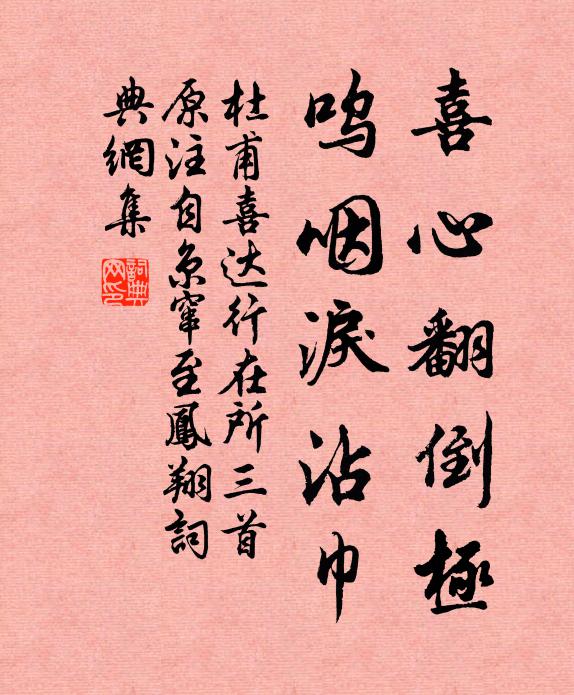 喜心翻倒極
嗚咽淚沾巾
杜甫喜达行在所三首
原注自京窜至鳳翔詞
典網集
詞典
网印